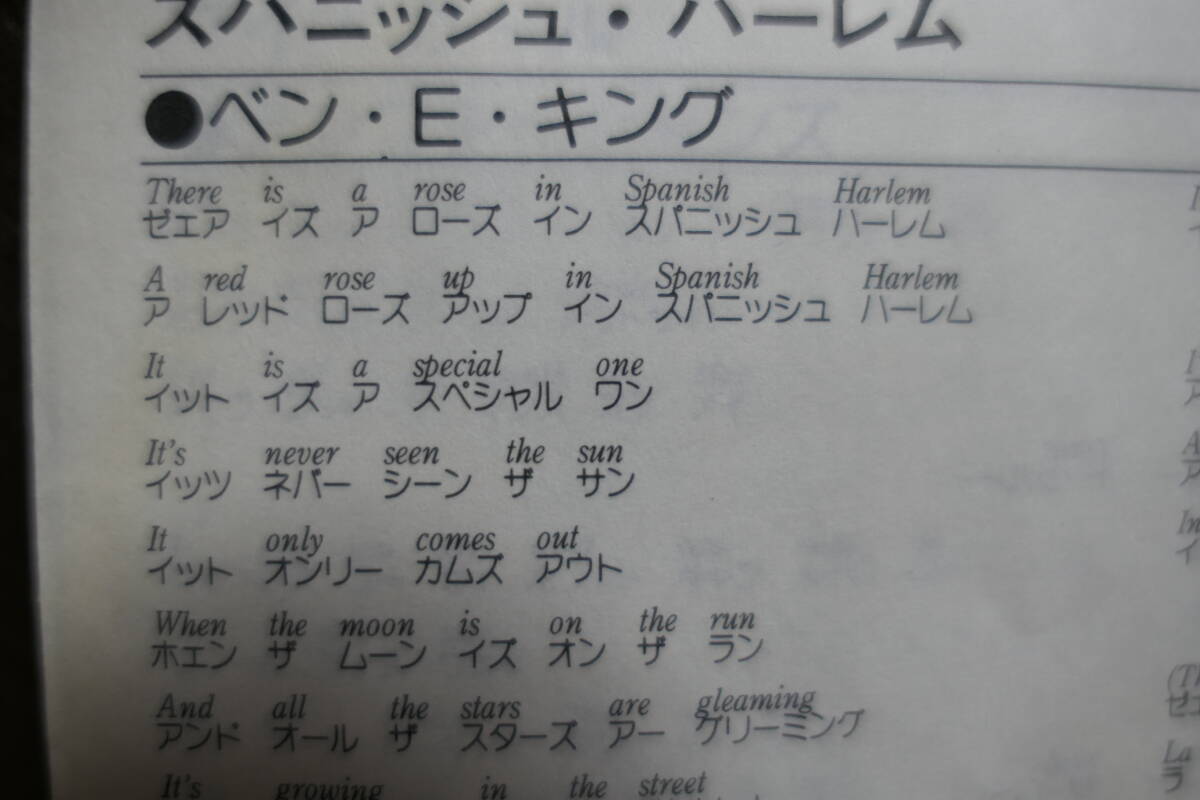 スパニッシュ・ハーレム
●ベン・E・キング
There is a rose in Spanish Harlem
ゼエア イズ ア ローズ イン スパニッシュ ハーレム
A red rose up in Spanish Harlem
ア レッド ローズ アップ イン スパニッシュ ハーレム
It is a special one
イット イズ ア スペシャル ワン
It's never seen the sun
イッツ ネバー シーン ザ サン
It only comes out
イット オンリー カムズ アウト
When the moon is on the run
ホエン ザ ムーン イズ オン ザ ラン
And all the stars are gleaming
アンド オール ザ スターズ アー グリーミング
It's growing in the street
(Th
ゼエ
La
ラ